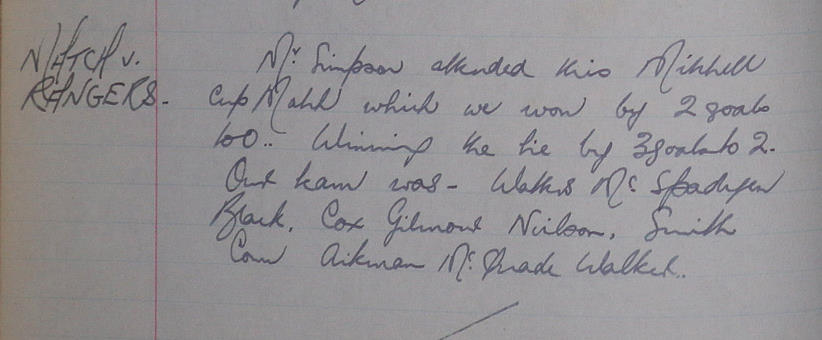 MATCH v.
RANGERS.
Mr Simpson attended this Mitchell
Cup Match which we won by 2 goals
to 0.. Winning the tie by 3 goals to 2.
Our team was - Walters McSpadyen
Black, Cox Gilmour Neilson, Smith
Conn Aikman McQuade Walker..